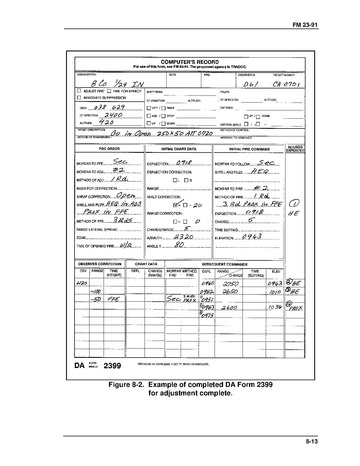 FM 23-91
COMPUTER'S RECORD
For use of this form, see FM 23-91. The proponent agency is TRADOC.
ORGANIZATION DATE TIME OBSERVER ID TARGET NUMBER
B Co 1/29 IN D61 CA 0701
ADJUST FIRE FIRE FOR EFFECT SHIFT FROM POLAR
IMMEDIATE SUPPRESSION OT DIRECTION ALTITUDE OT DIRECTION ALTITUDE
GRID 038 629 LEFT / RIGHT DISTANCE
OT DIRECTION 2400 ADD / DROP UP / DOWN
ALTITUDE 420 UP / DOWN VERTICAL ANGLE
TARGET DESCRIPTION METHOD OF CONTROL
Bo in Open 250x50 ATT 0920
METHOD OF ENGAGEMENT MESSAGE TO OBSERVER
FDC ORDER INITIAL CHART DATA INITIAL FIRE COMMAND ROUNDS EXPENDED
MORTAR TO FFE Sec DEFLECTION 0918 MORTAR TO FOLLOW Sec
MORTAR TO ADJ #2 DEFLECTION CORRECTION SHELL AND FUZE HEQ
METHOD OF ADJ 1 Rd L R
BASIS FOR CORRECTION RANGE MORTAR TO FIRE #2
SHEAF CORRECTION Open VI/ALT CORRECTION METHOD OF FIRE 1 Rd
SHELL AND FUZE HEQ in ADJ + - 20 3 Rds Prox in FFE 1
Prox in FFE RANGE CORRECTION DEFLECTION 0918 HE
METHOD OF FFE 3 Rds + - 0 CHARGE 5
RANGE LATERAL SPREAD CHARGE/RANGE 5 TIME SETTING
ZONE AZIMUTH 2320 ELEVATION 0963
TIME OF OPENING FIRE W/R ANGLE T 80
OBSERVER CORRECTION CHART DATA SUBSEQUENT COMMANDS
DEV RANGE TIME (HEIGHT) DEFL CHARGE (RANGE) MORTAR FIRE METHOD FIRE DEFL RANGE CHARGE TIME (SETTING) ELEV
0960 2750 0963 2 HE
-100 0962 2650 1010 HE
-50 FFE Sec 3 Rds Prox 0951
0963 2600 1036 PROX
0975
DA FORM 2399
Figure 8-2. Example of completed DA Form 2399
for adjustment complete.
8-13